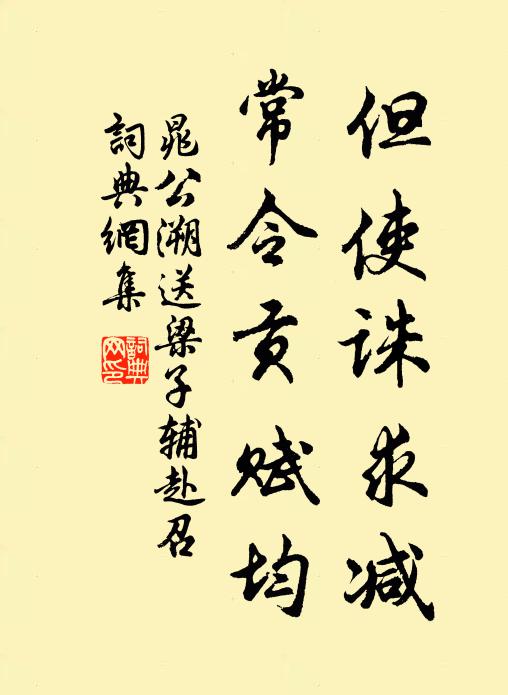 但使诛求减
常令贡赋均
晁公溯送梁子辅赴召
詞典網集
詞典網印